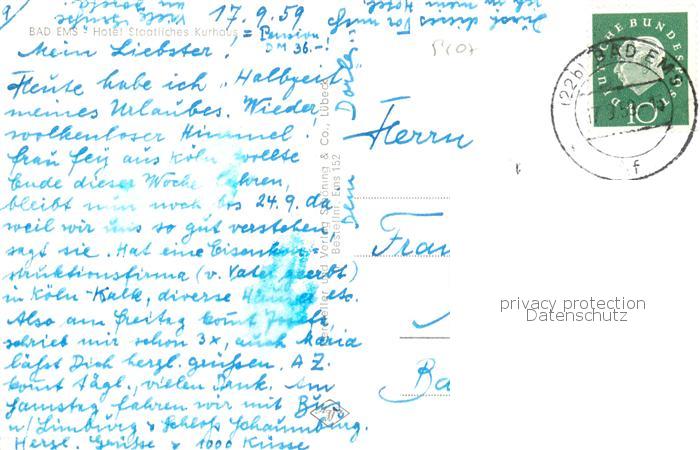 17.9.59
BAD EMS - Hotel Staatliches Kurhaus
= Pension
DM 36.-!
Mein Liebster!
Heute habe ich "Halbzeit"
meines Urlaubes. Wieder
wolkenloser Himmel.
Frau Fey aus Köln wollte
Ende dieser Woche fahren,
bleibt nun noch bis 24.9. da
weil wir uns so gut verstehen
sagt sie. Hat eine Eisenkon-
struktionsfirma (v. Vater geerbt)
in Köln-Kalk, diverse Häuser etc.
Also am Freitag komt
schrieb mir schon 3x, auch Maria
läßt Dich herzl. grüßen. A Z.
komt tägl., vielen Dank. Am
Samstag fahren wir mit Bus
n/Limburg & Schloß Schaumburg.
Herzl. Grüße & 1000 Küsse
Dein
Durch dieses Tor
Hersteller und Verlag Schöning & Co., Lübeck
Bestellnr. Ems 152
Herrn
Frau
Ba
DEUTSCHE BUNDESPOST
10
(22b) BAD EMS
f
privacy protection
Datenschutz